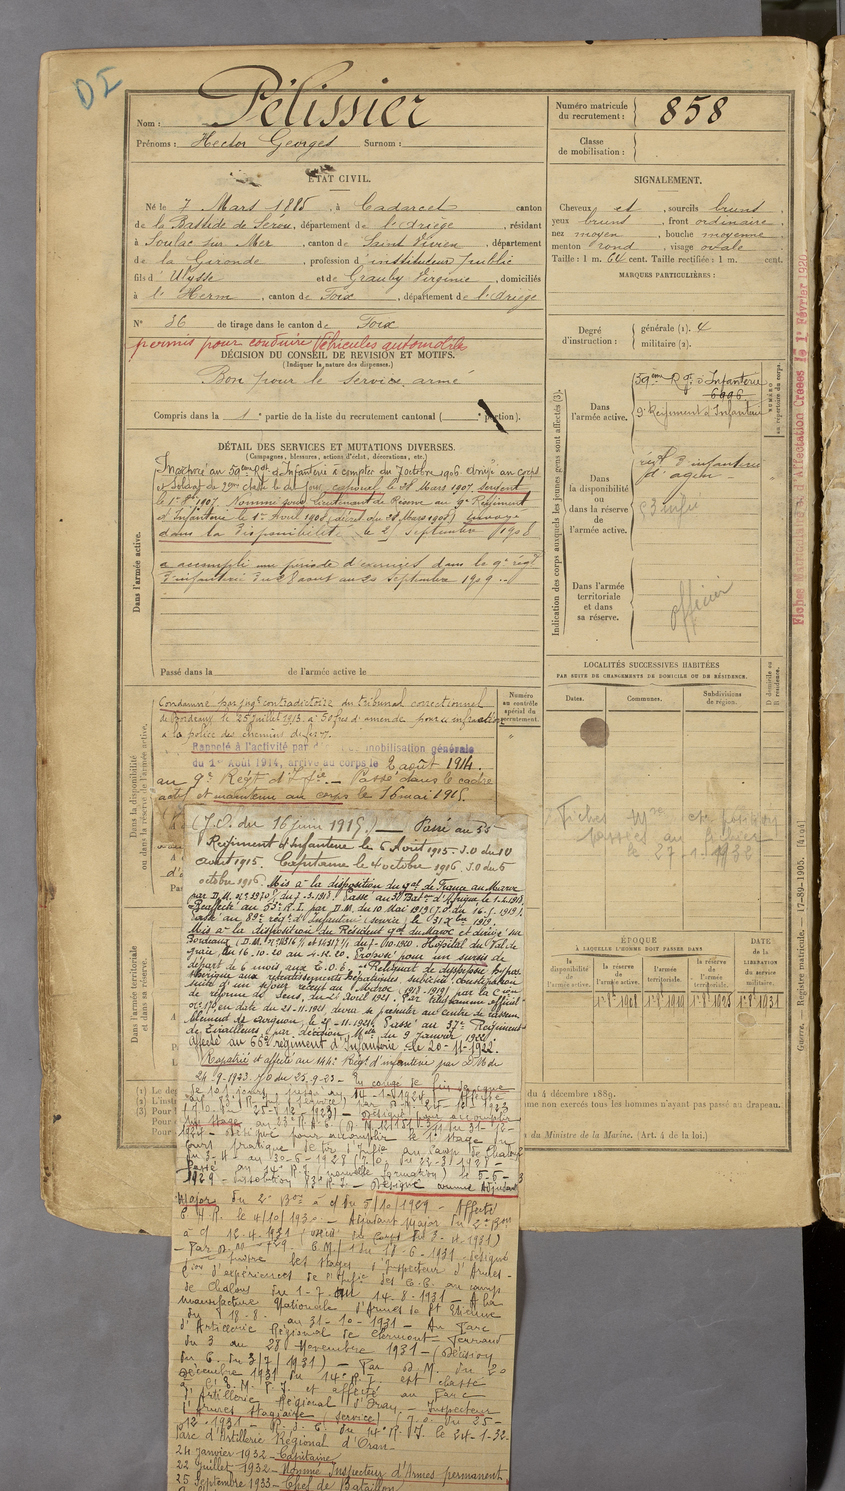 DI
Nom : Pélissier
Prénoms : Hector Georges Surnom :
ÉTAT CIVIL.
Né le 7 Mars 1885, à Cadarcet canton
de la Bastide de Sérou, département de l'Ariège, résidant
à Soulac sur Mer, canton de Saint Vivien, département
de la Gironde, profession d'instituteur public
fils d'Ulysse et de Grauby Virginie, domiciliés
à l'Herm, canton de Foix, département de l'Ariège
N° 36 de tirage dans le canton de Foix
permis pour conduire véhicules automobile
DÉCISION DU CONSEIL DE REVISION ET MOTIFS.
(Indiquer la nature des dispenses.)
Bon pour le service armé
Compris dans la 1e partie de la liste du recrutement cantonal ( portion).
Numéro matricule
du recrutement : 858
Classe
de mobilisation :
SIGNALEMENT.
Cheveux et, sourcils bruns
yeux bruns, front ordinaire
nez moyen, bouche moyenne
menton rond, visage ovale
Taille : 1 m. 64 cent. Taille rectifiée : 1 m. cent.
MARQUES PARTICULIÈRES :
Degré
d'instruction :
générale (1). 4
militaire (2).
DÉTAIL DES SERVICES ET MUTATIONS DIVERSES.
(Campagnes, blessures, actions d'éclat, décorations, etc.)
Dans l'armée active.
Incorporé au 59eme Rgt d'Infanterie à compter du 7 octobre 1906 arrivé au corps
et soldat de 2eme classe le dit jour, caporal le 28 Mars 1907, sergent
le 1907. Nommé sous lieutenant de Réserve au 9e Régiment
d'Infanterie le 1er Avril 1908 (décret du 28 Mars 1908) Envoyé
dans la disponibilité le 2 Septembre 1908
a accompli une période d'exercices dans le 9e régt
d'infanterie du 28 août au Septembre 1909
Passé dans la de l'armée active le
Indication des corps auxquels les jeunes gens sont affectés (3).
Dans
l'armée active.
59eme Rgt d'Infanterie
6996
9e Régiment d'Infanterie
NUMÉRO
au répertoire du corps.
Dans
la disponibilité
ou
dans la réserve
de
l'armée active.
régt d'infanterie
d'agen
Dans l'armée
territoriale
et dans
sa réserve.
officier
LOCALITÉS SUCCESSIVES HABITÉES
PAR SUITE DE CHANGEMENTS DE DOMICILE OU DE RÉSIDENCE.
Dates. Communes. Subdivisions
de région.
D domicile ou
R résidence.
Numéro
au contrôle
spécial du
recrutement.
Dans la disponibilité
ou dans la réserve de l'armée active.
Condamné par jugt contradictoire du tribunal correctionnel
de Bordeaux le 25 juillet 1913 à 50 frs d'amende pour infraction
à la police des chemins de fer.
Rappelé à l'activité par mobilisation générale
du 1er Août 1914, arrivé au corps le 2 août 1914.
au 9e Régt d'Ife. — Passé dans le cadre
actif et maintenu au corps le 16 mai 1915.
(J.O. du 16 juin 1915.) — Passé au 35
Régiment d'Infanterie le 6 Août 1915 - J.O du 10
août 1915. Capitaine le 4 octobre 1916, J.O du 6
octobre 1916. Mis à la disposition du Gal de France au Maroc
par D.M. du 7-3-1918. Passé au Batn d'Afrique le 1-4-1918.
Réaffecté au 55e R.I. par D.M. du 10 Mai 1919 (J.O. du 16-5-1919).
Passé au 89e régt d'Infanterie (service) le 1919.
Mis à la disposition du Résident Gal du Maroc et dirigé sur
Bordeaux du 7-10-1920. Hôpital du Val de
Grâce, du 16.10.20 au 4.12.20. Proposé pour un sursis de
départ de 6 mois aux T.O.E. Reliquat de dyspepsie hypo
sthénique avec retentissements hépatiques, subictère, constipation
suite d'un séjour récent au Maroc (1918-1919) par la Cion
de réforme de Sens, du 25 Avril 1921. Par télégramme officiel
en date du 21-11-1921 devra se présenter au centre de rassem
blement de Avignon, le 25-11-1921. Passé au 37e Régiment
de Tirailleurs, par décision Mlle du 9 Janvier 1922
affecté au 66e régiment d'Infanterie le 20-11-1922.
Rapatrié et affecté au 144e Régt d'infanterie par D.M. de
24-9-1923. J.O du 25-9-23 — En congé de fin de campagne
Désigné pour accomplir
un stage
1924 — Désigné pour accomplir le 1er stage du
cours pratique de tir d'Infie au Camp de Chalons
du 3-4- au 30-6-1928
Passé au 14e R.I. (nouvelle formation) le 5-6-
1929 - dissolution 83e R.I. — Désigné comme Adjudant
Major du 2e Bon à c/ du 5/10/1929 - Affecté
C.H.R. le 4/10/1930 — Adjudant Major du 2e Bon
à c/ 12-4-1931
— Par 729. E.M./1 du 18-6-1931 désigné
pour suivre les stages d'Inspecteur d'Armes -
d'expériences de l'Infie des C.C. au camp
de Chalons du 1-7- au 14-8-1931 — A la
manufacture Nationale d'Armes de St Etienne
du 18-8. au 31-10-1931 — Au Parc
d'Artillerie Régional de Clermont-Ferrand
du 3 au 28 Novembre 1931 — (Décision
du C. du 3/7/1931) — Par D.M. du 20
Décembre 1931 du 14e R.I. est classé
à l'E.M.P.I. et affecté au Parc
d'Artillerie Régional d'Oran — Inspecteur
d'Armes stagiaire (service) (J.O. du 25-
12-1931 — R.S.C. du 14e R.I. le 24-1-32-
Parc d'Artillerie Régional d'Oran -
24 Janvier 1932 - Capitaine
22 Juillet 1932 - Nommé Inspecteur d'Armes permanent
25 Septembre 1933 - Chef de Bataillon
Dans l'armée territoriale
et dans sa réserve.
Fiches Mle et
passées au fichier
le 27-1-1932
ÉPOQUE
À LAQUELLE L'HOMME DOIT PASSER DANS
DATE
de la
LIBÉRATION
du service
militaire.
la
disponibilité
de
l'armée active.
la réserve
de
l'armée active.
l'armée
territoriale.
la réserve
de
l'armée
territoriale.
1er 8bre 1908
1er 8bre 1931
(1) Le de
(2) L'inst
(3) Pour l
Pour
Pour
du 4 décembre 1889.
me non exercés tous les hommes n'ayant pas passé au drapeau.
du Ministre de la Marine. (Art. 4 de la loi.)
Guerre. — Registre matricule. — 17-89-1905. [4194]
Fiches Matricules et d'Affectation Créées le 1er Février 1920